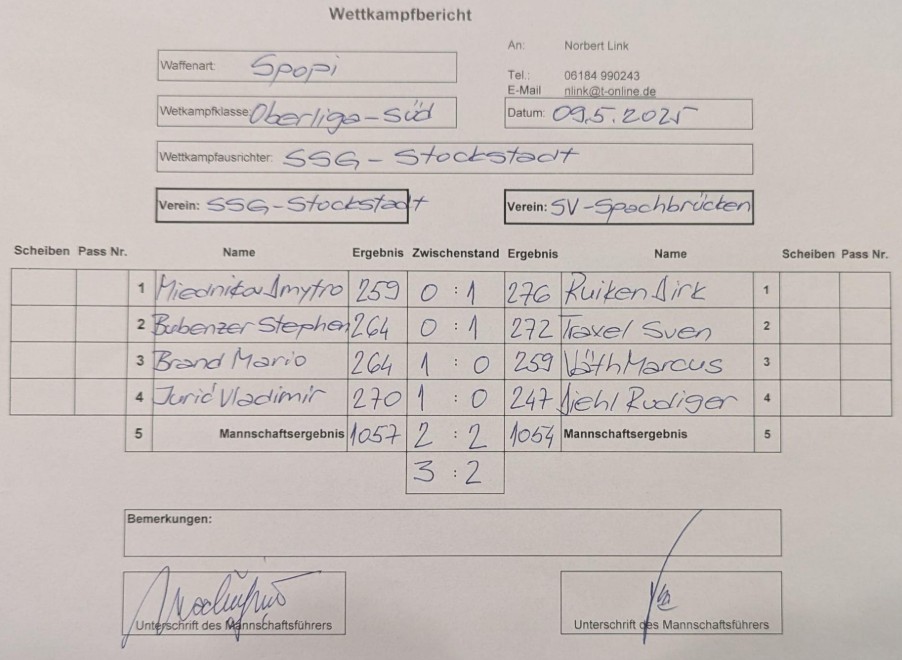 Wettkampfbericht
An: Norbert Link
Waffenart: Spopi
Tel.: 06184 990243
E-Mail nlink@t-online.de
Wetkampfklasse: Oberliga-Süd
Datum: 09.5.2025
Wettkampfausrichter: SSG-Stockstadt
Verein: SSG-Stockstadt
Verein: SV-Spachbrücken
Scheiben Pass Nr. Name Ergebnis Zwischenstand Ergebnis Name Scheiben Pass Nr.
1 Dmytro 259 0 : 1 276 Ruiken Dirk 1
2 Bubenzer Stephen 264 0 : 1 272 Traxel Sven 2
3 Brand Mario 264 1 : 0 259 Väth Marcus 3
4 Jurić Vladimir 270 1 : 0 247 Diehl Rudiger 4
5 Mannschaftsergebnis 1057 2 : 2 1054 Mannschaftsergebnis 5
3 : 2
Bemerkungen:
Unterschrift des Mannschaftsführers
Unterschrift des Mannschaftsführers